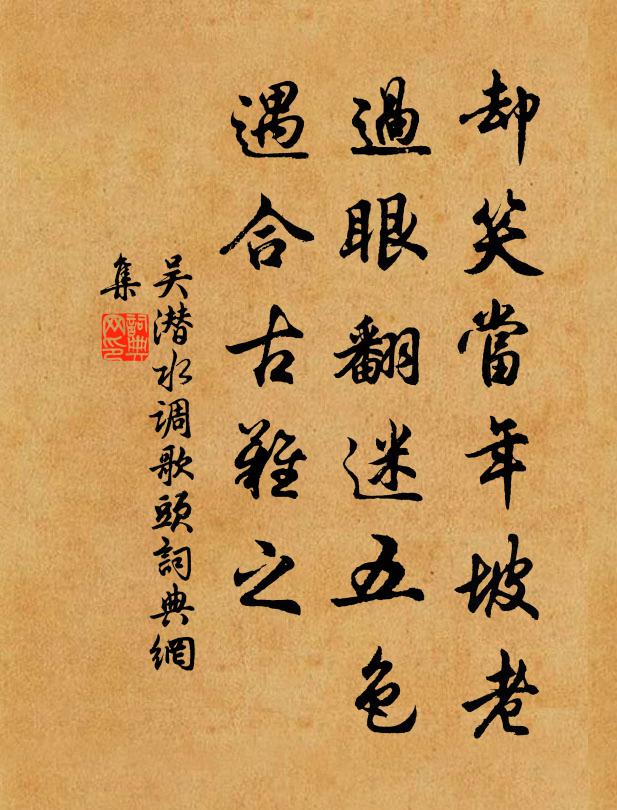 却笑當年坡老
過眼翻迷五色
遇合古難之
吴潜水调歌頭詞典網
集
詞典网印